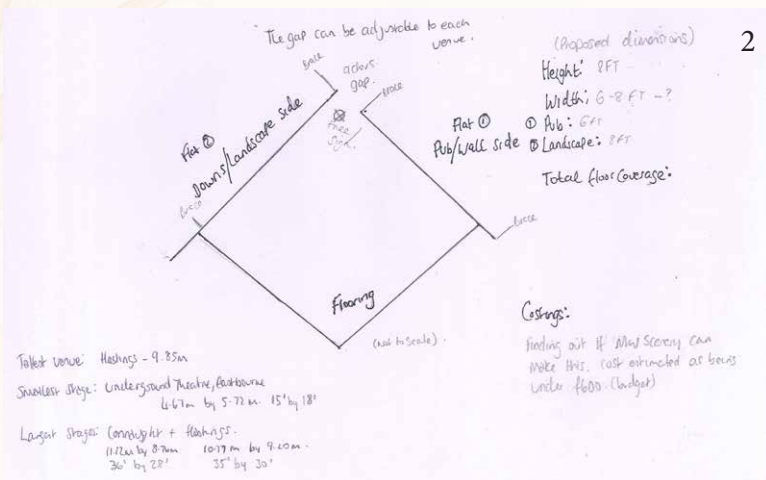 The gap can be adjustable to each
venue.
(Proposed dimensions)
2
Height: 8FT
Width: 6-8 FT -?
① Pub: 6FT
② Landscape: 8FT
Total floor Coverage:
brace
actors
gap.
brace
Tree
Sign
Flat ②
Downs/Landscape side
Flat ①
Pub/Wall side
brace
brace
Flooring
(not to scale).
Costings:
finding out if MW Scenery can
make this. Cost estimated as being
under £600. (budget)
Tallest venue: Hastings - 9.85m
Smallest stage: Underground Theatre, Eastbourne
4.67m by 5.72m. 15' by 18'
Largest stages: Connaught + Hastings.
11.12m by 8.70m 10.79m by 9.20m.
36' by 28' 35' by 30'